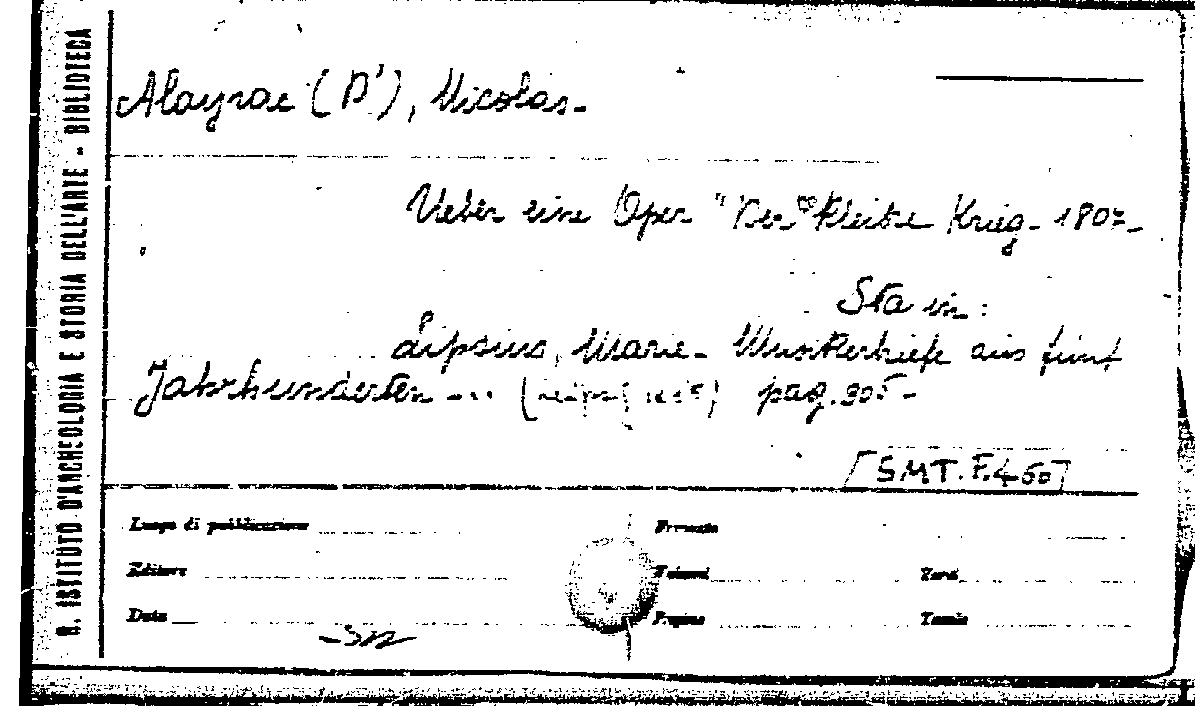 R. ISTITUTO D'ARCHEOLOGIA E STORIA DELL'ARTE - BIBLIOTECA
Alayrac (D'), Nicolas-
Ueber eine Oper "Der kleine Krieg- 1807-
Sta in:
Lipsius, Marie- Musikerbriefe aus fünf
Jahrhunderten --- pag. 305-
[SMT. F. 460]
Luogo di pubblicazione
Formato
Editore
Volumi
Tavole
Data
Pagine